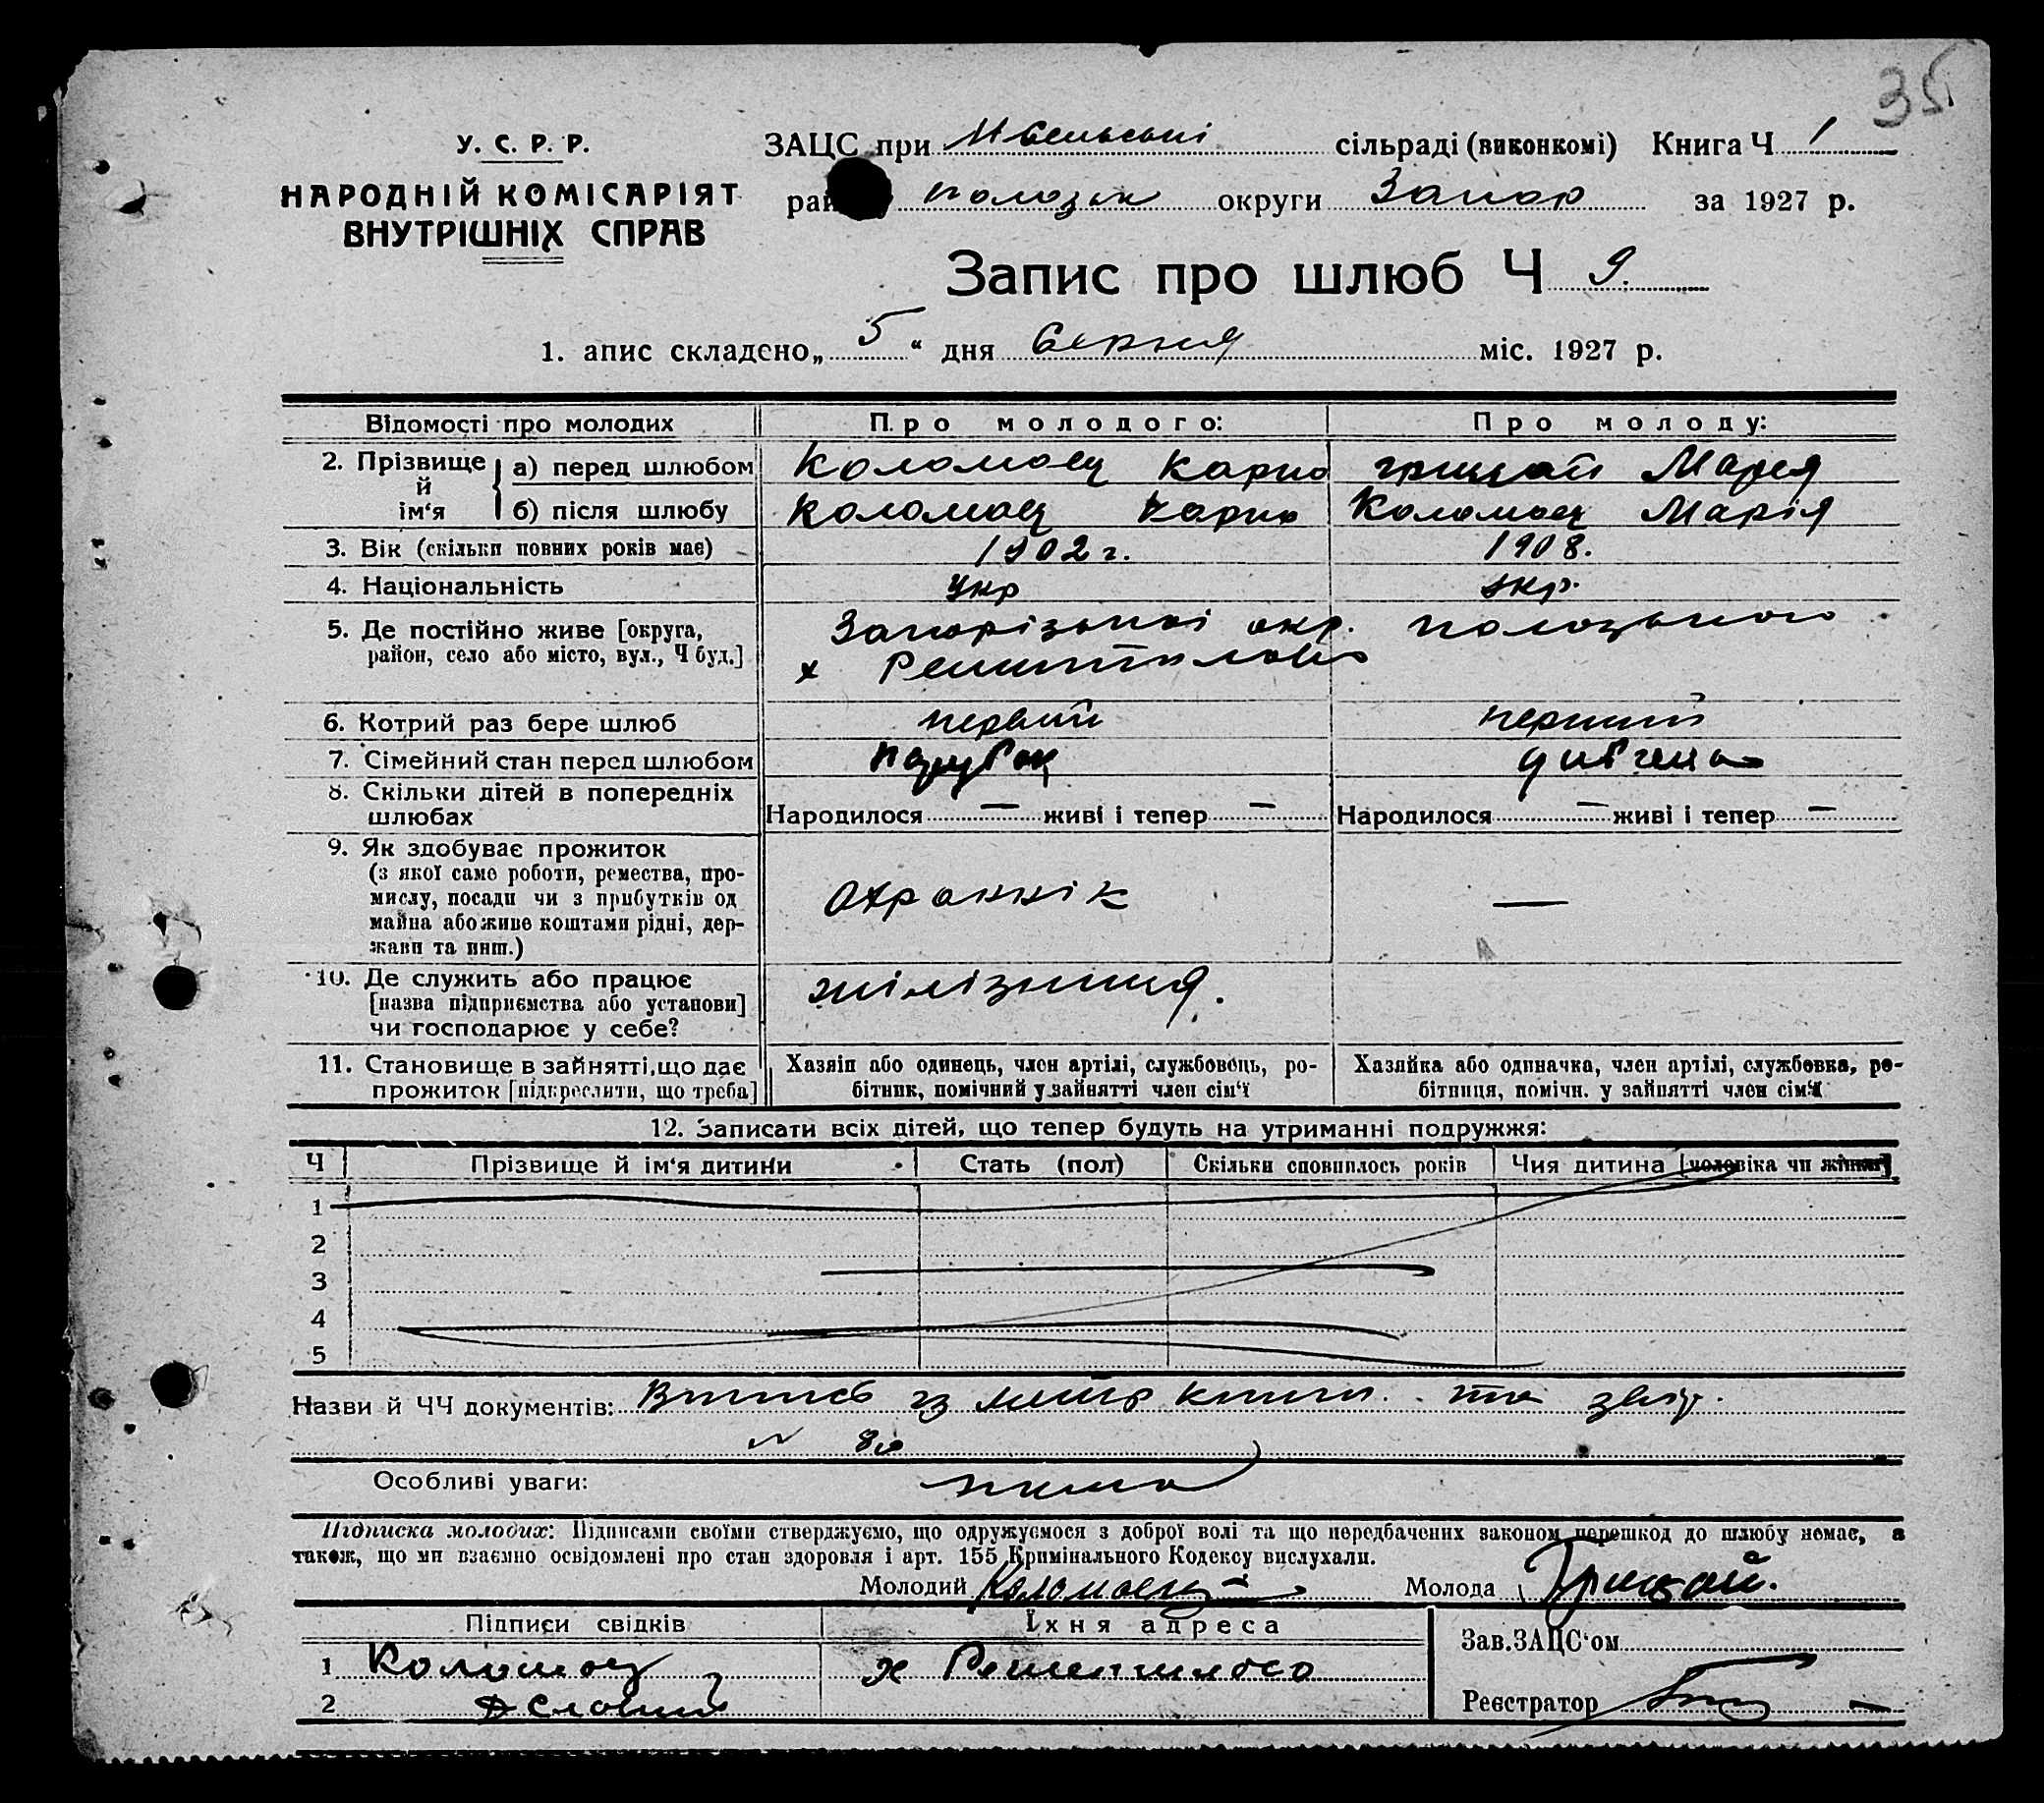 35
У. С. Р. Р.
НАРОДНІЙ КОМІСАРІЯТ
ВНУТРІШНІХ СПРАВ
ЗАЦС при сільраді (виконкомі) Книга Ч 1
рай Полозьк округи Запор за 1927 р.
Запис про шлюб Ч 9.
1. апис складено „ 5 “ дня Серпня міс. 1927 р.
Відомості про молодих Про молодого: Про молоду:
2. Прізвище й ім‘я а) перед шлюбом Коломоец Карпо Грицай Марея
б) після шлюбу Коломоец Карпо Коломоец Марія
3. Вік (скільки повних років має) 1902 г. 1908.
4. Національність Укр укр.
5. Де постійно живе [округа, Запорізькоі окр. Полозького
район, село або місто, вул., Ч буд.] х
6. Котрий раз бере шлюб первий перший
7. Сімейний стан перед шлюбом парубок дивчина
8. Скільки дітей в попередніх
шлюбах Народилося — живі і тепер — Народилося — живі і тепер —
9. Як здобуває прожиток
(з якої само роботи, ремества, про-
мислу, посади чи з прибутків од
майна або живе коштами рідні, дер-
жави та инш.) Охраннік —
10. Де служить або працює
[назва підприємства або установи]
чи господарює у себе? жілізниця.
11. Становище в зайнятті, що дає Хазяін або одинець, член артілі, службовець, ро- Хазяйка або одиначка, член артілі, службовка, ро-
прожиток [підкреслити, що треба] бітник, помічний у зайнятті член сім‘ї бітниця, помічн. у зайнятті член сім‘ї
12. Записати всіх дітей, що тепер будуть на утриманні подружжя:
Ч Прізвище й ім‘я дитини Стать (пол) Скільки сповнилось років Чия дитина [чоловіка чи жінки]
1
2
3
4
5
Назви й ЧЧ документів: Виписъ із метр книги. та
№ 80
Особливі уваги: нима
Підписка молодих: Підписами своїми стверджуємо, що одружуємося з доброї волі та що передбачених законом перешкод до шлюбу немає, а
також, що ми взаємно освідомлені про стан здоровля і арт. 155 Кримінального Кодексу вислухали.
Молодий Коломоец Молода Грицай.
Підписи свідків Їхня адреса
1 Коломоец х
2
Зав. ЗАЦС‘ом
Реєстратор